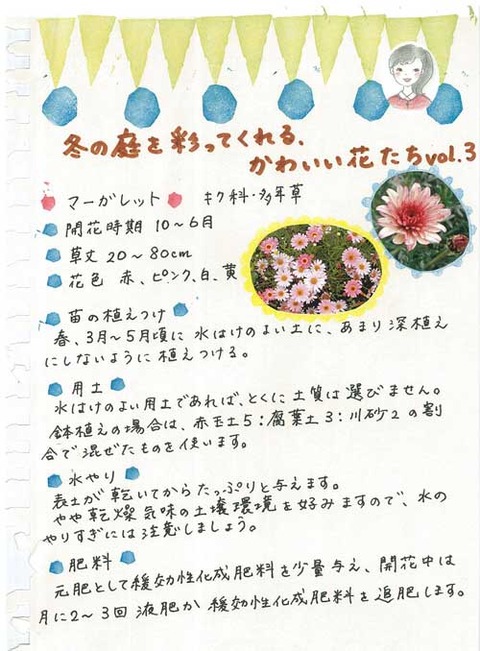 冬の庭を彩ってくれる、
かわいい花たちvol.3
マーガレット キク科・多年草
開花時期 10～6月
草丈 20～80cm
花色 赤、ピンク、白、黄
苗の植えつけ
春、3月～5月頃に 水はけのよい土に、あまり深植え
にしないように 植えつける。
用土
水はけのよい用土であれば、とくに 土質は 選びません。
鉢植えの場合は、赤玉土5：腐葉土3：川砂2の割
合で混ぜたものを使います。
水やり
表土が 乾いてからたっぷりと与えます。
やや乾燥気味の土壌環境を好みますので、水の
やりすぎには注意しましょう。
肥料
元肥として緩効性化成肥料を少量与え、開花中は
月に2～3回 液肥か 緩効性化成肥料を追肥します。